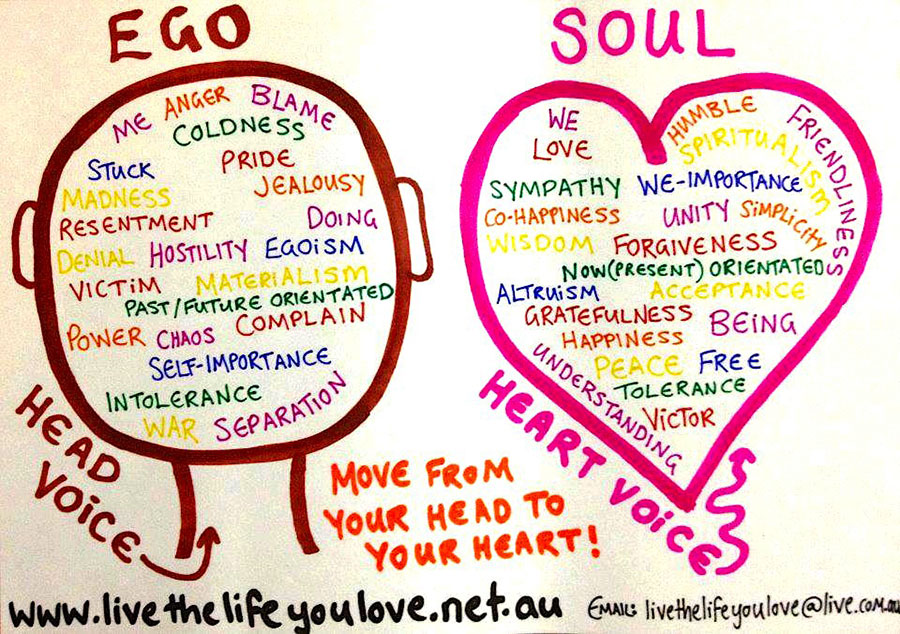 EGO
ME ANGER BLAME
COLDNESS
STUCK PRIDE
MADNESS JEALOUSY
RESENTMENT DOING
DENIAL HOSTILITY EGOISM
VICTIM MATERIALISM
PAST/FUTURE ORIENTATED
POWER CHAOS COMPLAIN
SELF-IMPORTANCE
INTOLERANCE
WAR SEPARATION
HEAD
VOICE
SOUL
WE HUMBLE FRIENDLINESS
LOVE SPIRITUALISM
SYMPATHY WE-IMPORTANCE
CO-HAPPINESS UNITY SIMPLICITY
WISDOM FORGIVENESS
NOW(PRESENT) ORIENTATED
ALTRUISM ACCEPTANCE
GRATEFULNESS BEING
HAPPINESS
PEACE FREE
UNDERSTANDING TOLERANCE
VICTOR
HEART VOICE
MOVE FROM
YOUR HEAD TO
YOUR HEART!
www.livethelifeyoulove.net.au EMAIL: livethelifeyoulove@live.com.au